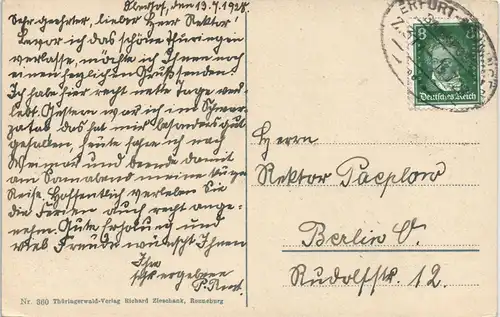 Oberhof, den 13.7.1928.
Sehr geehrter, lieber Herr Rektor!
Bevor ich das schöne Thüringen
verlasse, möchte ich Ihnen noch
einen herzlichen Gruß senden.
Ich habe hier recht nette Tage ver-
lebt. Gestern war ich im Schwar-
zatal das hat mir besonders gut
gefallen, heute fahre ich nach
Weimar und beende damit
am Sonnabend meine
Reise. Hoffentlich verleben Sie
die Ferien auch recht ange-
nehm. Gute Erholung und
viel Freude wünscht Ihnen
Ihr
sehr ergebener
P.
ERFURT
8 8
Deutsches Reich
Herrn
Rektor Paeplow
Berlin O.
Rudolfstr. 12.
Nr. 360 Thüringerwald-Verlag Richard Zieschank, Ronneburg